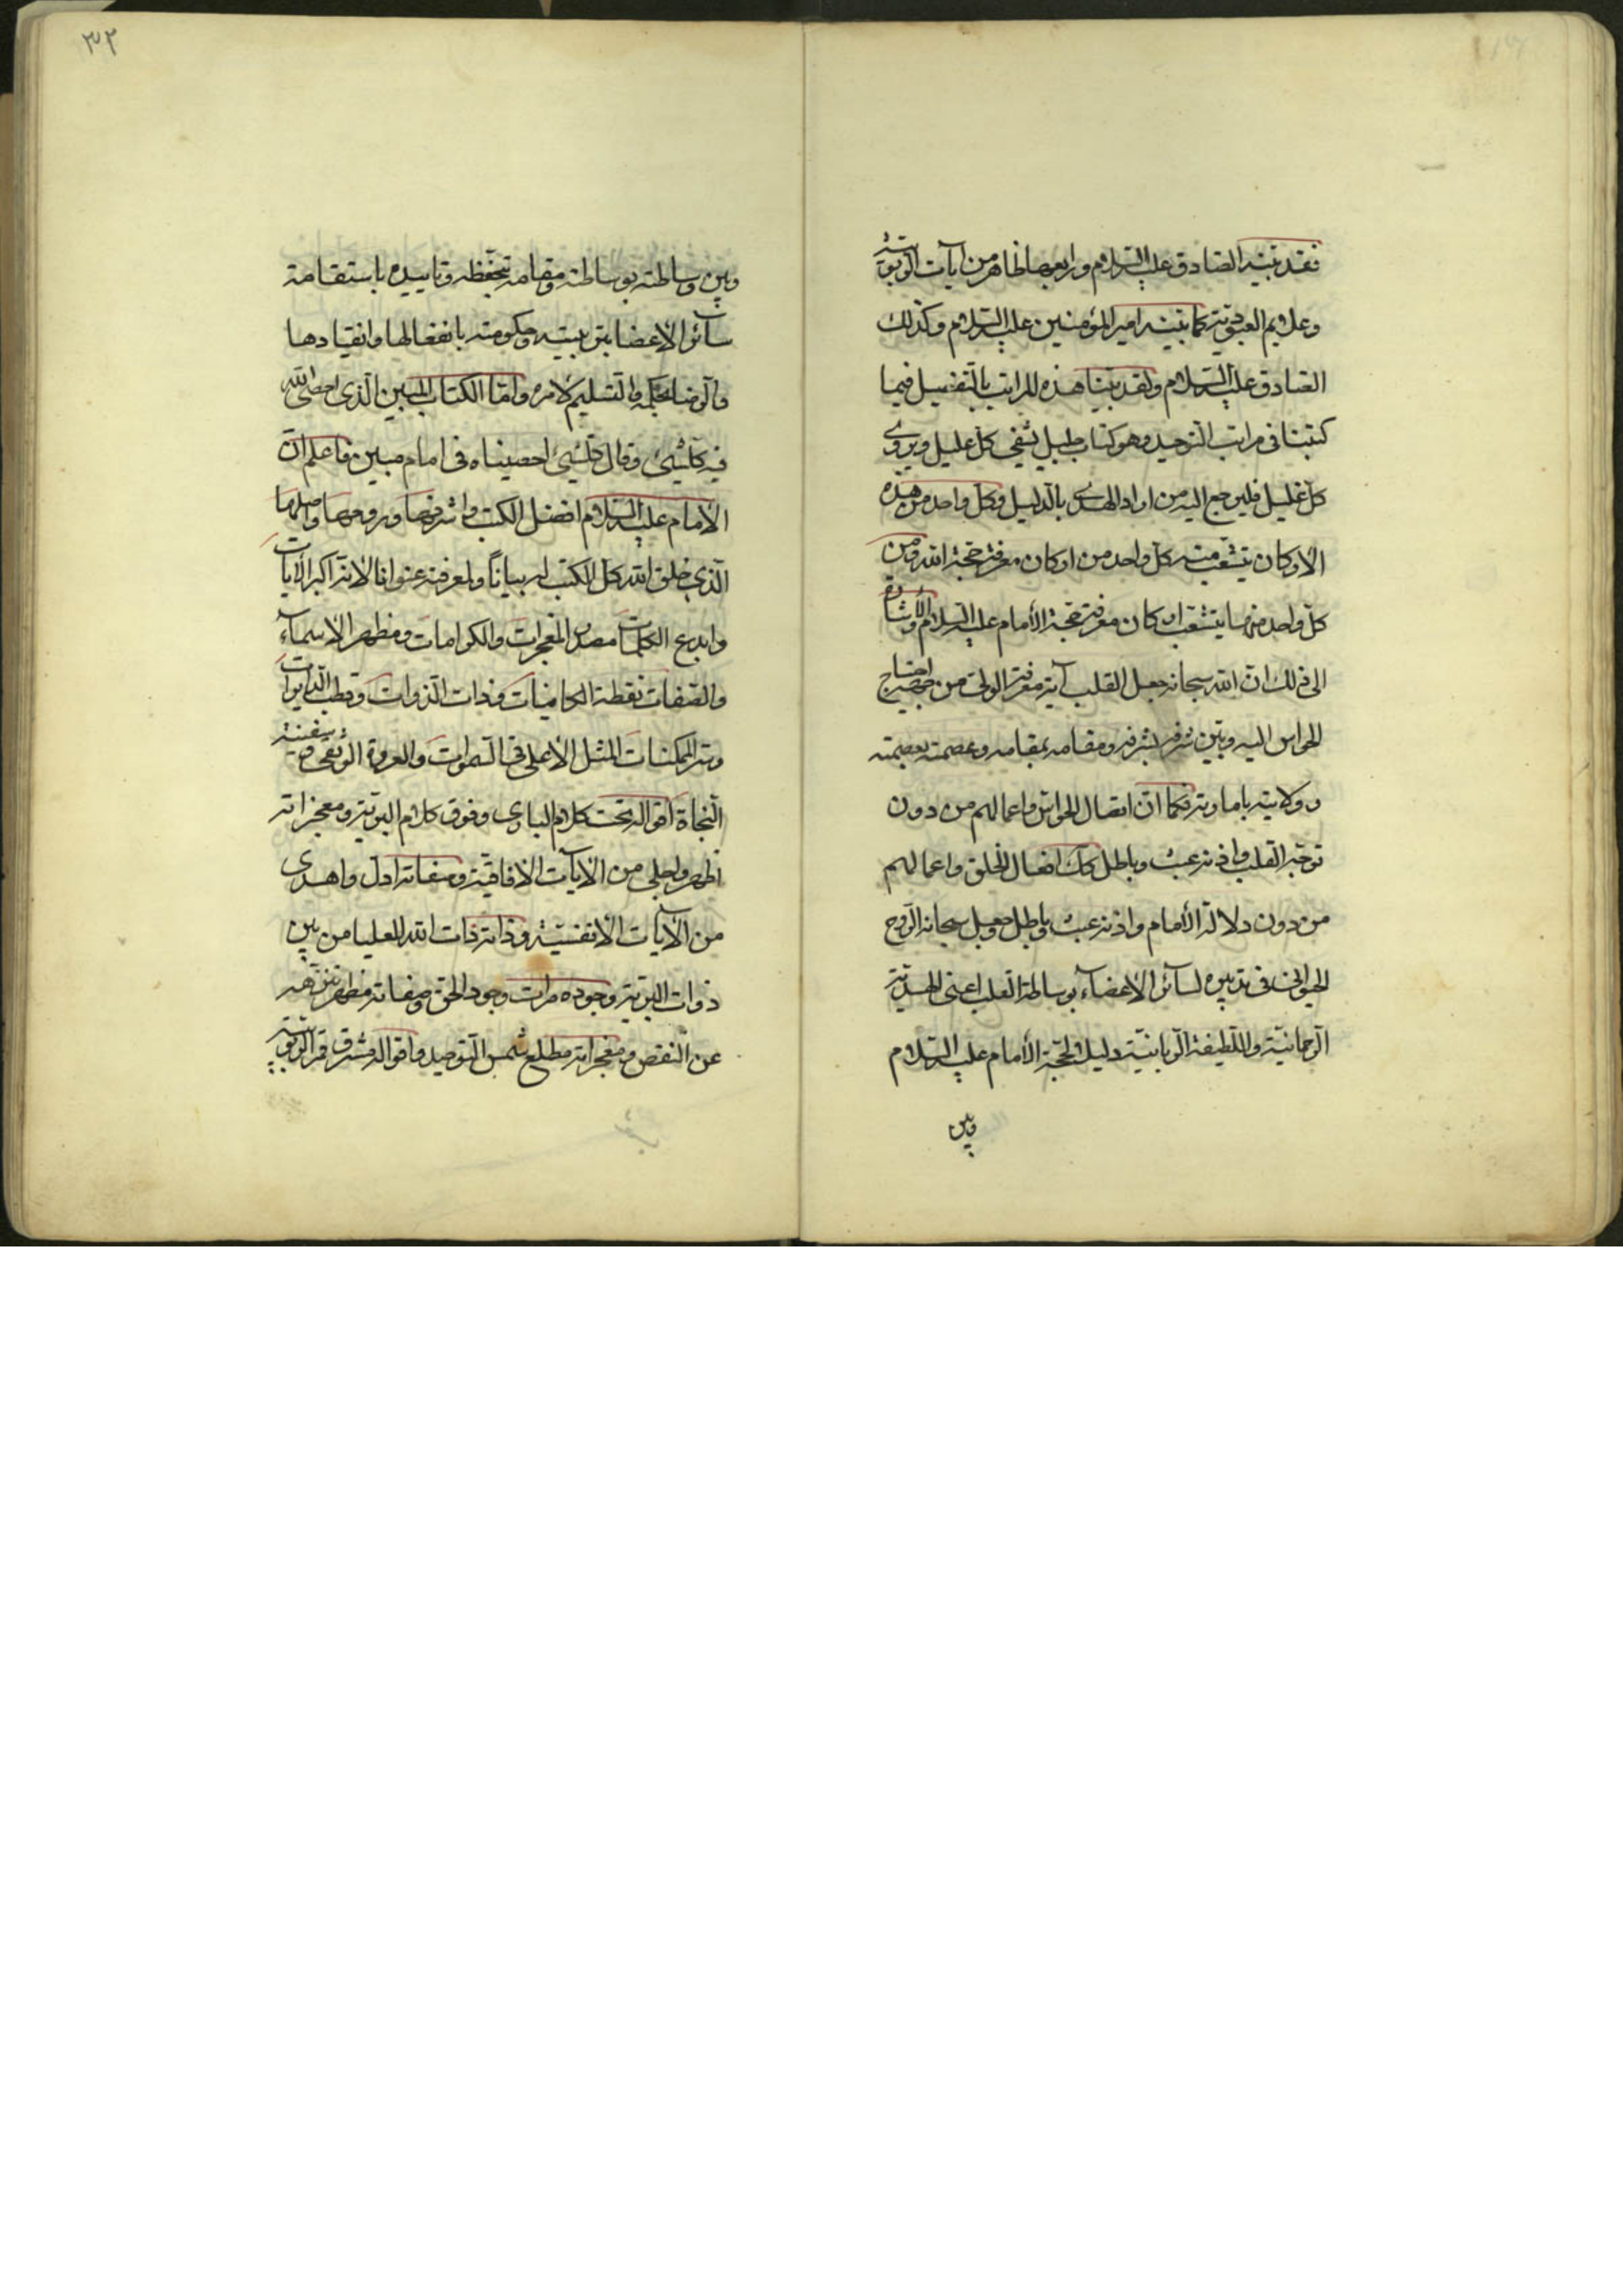 فقد بينه الصادق عليه السلام ورابعها ظاهر من آيات الربوبية
وعلايم العبودية كما بينه امير المؤمنين عليه السلام وكذلك
الصادق عليه السلام ولقد بينا هذه المراتب بالتفصيل فيما
كتبنا في مراتب التوحيد وهو كتاب جليل يشفي كل عليل ويروى
كل غليل فليرجع اليه من اراد الهدى بالدليل وكل واحد من هذه
الاركان يتشعب منه كل واحد من اركان معرفة حجة الله ومن
كل واحد منها يتشعب اركان معرفة حجة الأمام عليه السلام والأشارة
الى ذلك ان الله سبحانه جعل القلب آية معرفة الولي من جهة احتياج
الحواس اليه وبين شرفه بشرفه ومقامه بمقامه وعصمته بعصمته
وولايته باماريته فكما ان افعال الحواس واعمالهم من دون
توجه القلب واذنه عبث وباطل كك افعال الخلق واعمالهم
من دون دلالة الأمام واذنه عبث وباطل وجعل سبحانه الروح
الحيواني في تدبيره لسائر الاعضاء بوساطة القلب اعني الهدية
الرحمانية واللطيفة الربانية دليل لحجة الأمام عليه السلام
وبين
٣٢
وبين وساطته بوساطته ومقامه بحفظه وتاييده باستقامة
سائر الاعضا بتربيته وحكومته بانفعالها وانقيادها
والرضا بحكمه والتسليم لامره واما الكتاب المبين الذي احصى الله
فيه كلشيئ وقال كلشيئ احصيناه في امام مبين فاعلم ان
الأمام عليه السلام افضل الكتب واشرفها وروحها واصلها
الذي خلق الله كل الكتب له بيانا ولمعرفته عنوانا لانه اكبر الآيات
وابدع الكلمات مصدر المعجزات والكرامات ومظهر الاسماء
والصفات نقطة الكاينات وذات الذوات وقطب الدايرات
وسر الممكنات المثل الأعلى في السموات والعروة الوثقى وسفينة
النجاة اقواله تحت كلام الباري وفوق كلام البرية ومعجزاته
اظهر واجلى من الآيات الآفاقية وصفاته ادل واهدى
من الآيات الأنفسية وذاته ذات الله العليا من بين
ذوات البرية وجوده مرات وجود الحق وصفاته مظهر تنزهه
عن النقص ومعجزاته مطلع شمس التوحيد واقواله مشرق قمر الربوبية